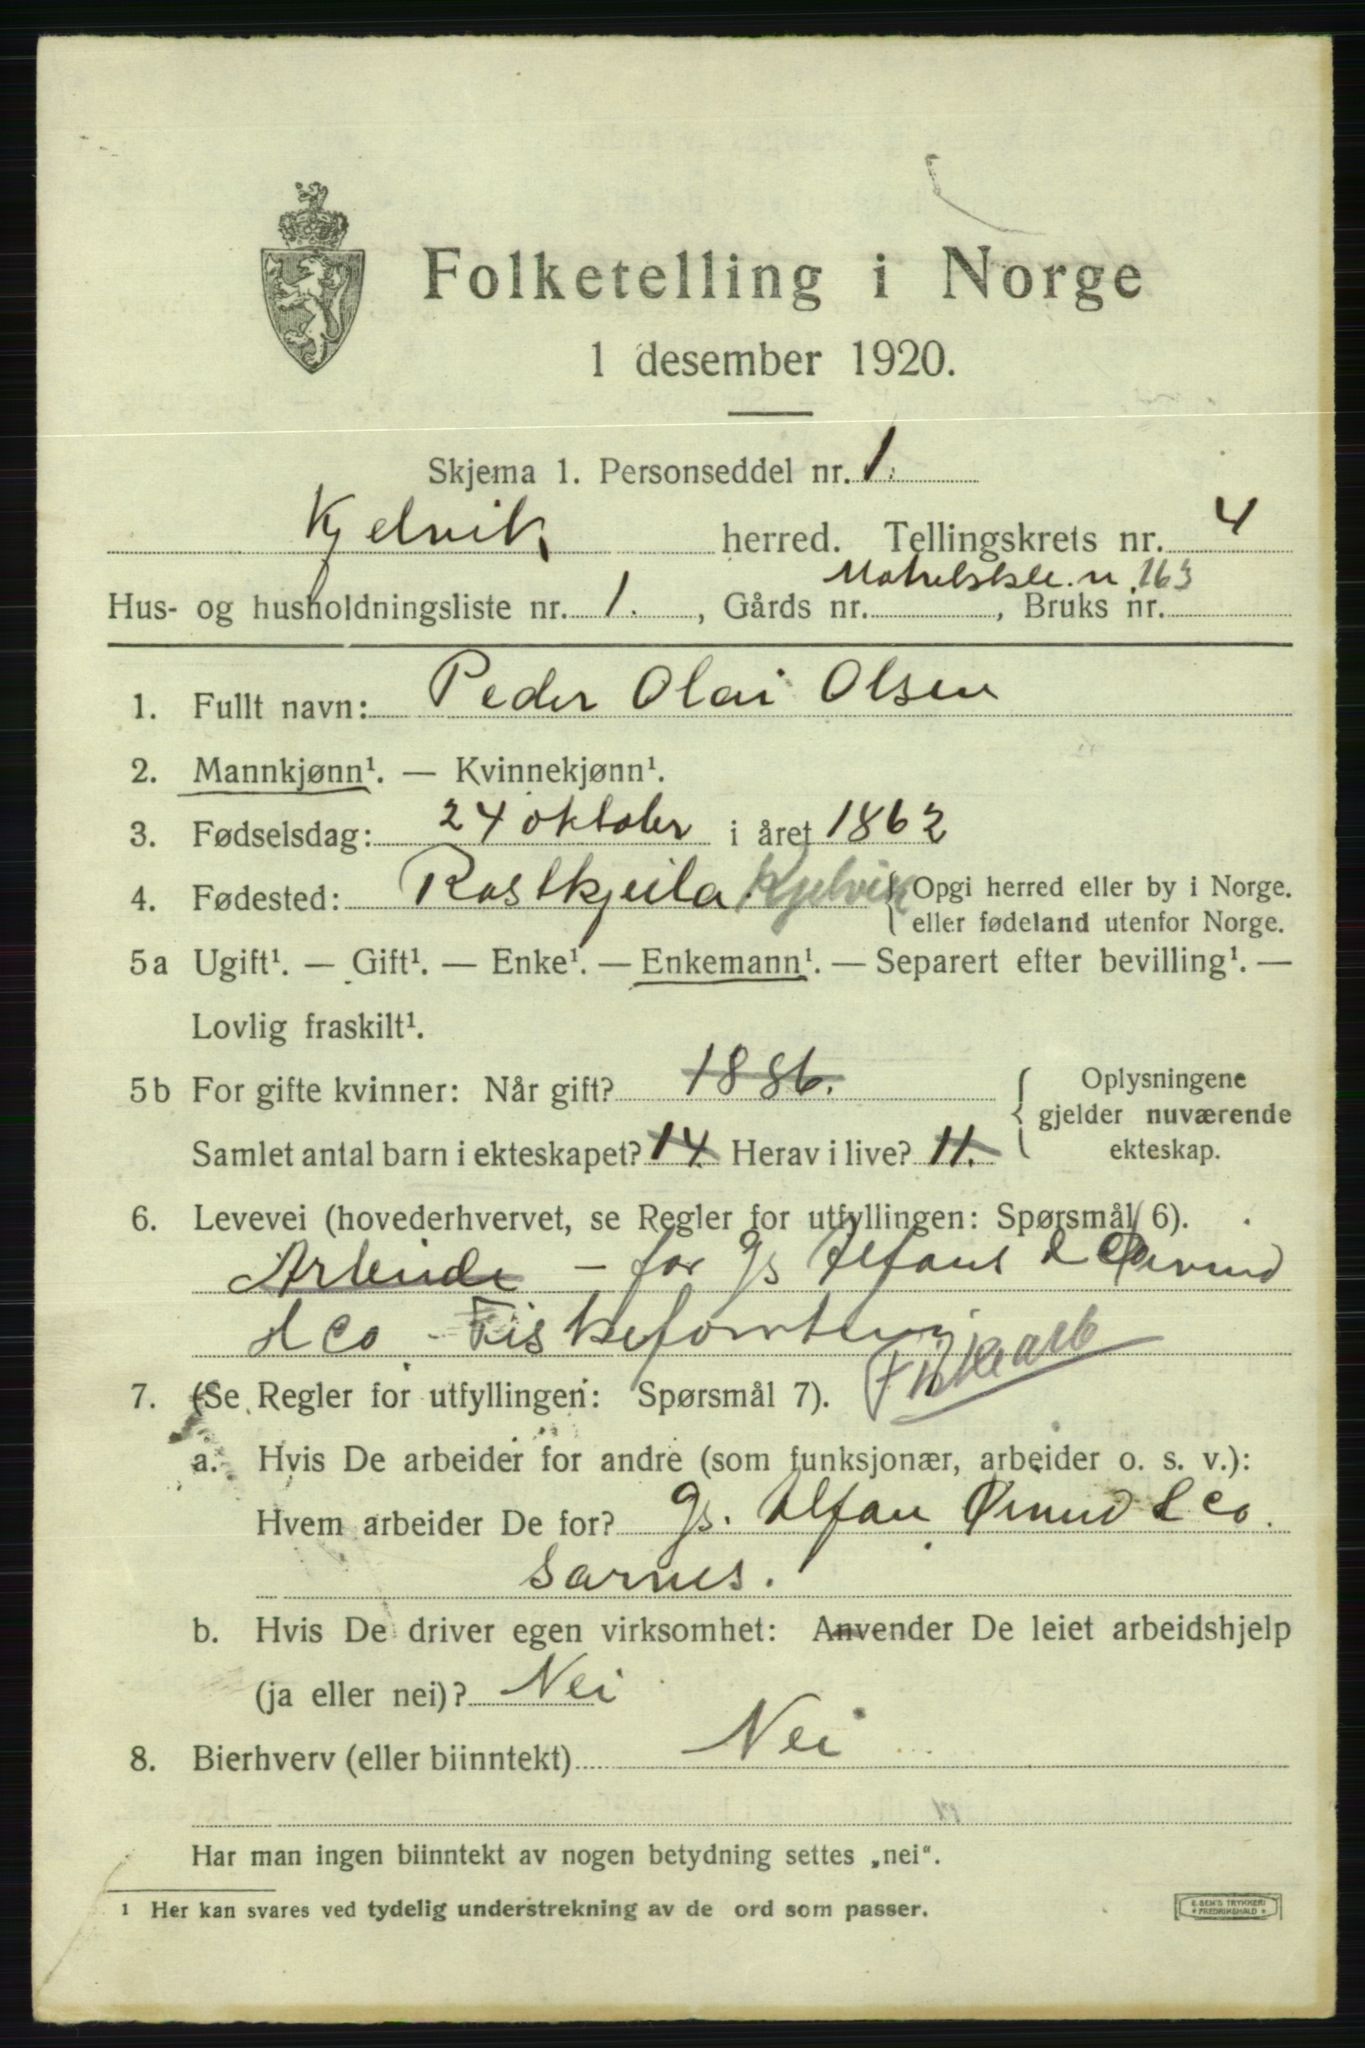 Folketelling i Norge
1 desember 1920.
Skjema 1. Personseddel nr. 1.
Kjelvik herred. Tellingskrets nr. 4
163
Hus- og husholdningsliste nr. 1., Gårds nr. , Bruks nr.
1. Fullt navn: Peder Olai Olsen
2. Mannkjønn¹. — Kvinnekjønn¹.
3. Fødselsdag: 24 oktober i året 1862
4. Fødested: Kjelvik { Opgi herred eller by i Norge.
eller fødeland utenfor Norge.
5a Ugift¹. — Gift¹. — Enke¹. — Enkemann¹. — Separert efter bevilling¹. —
Lovlig fraskilt¹.
5b For gifte kvinner: Når gift? 1886. { Oplysningene
gjelder nuværende
Samlet antal barn i ekteskapet? 14 Herav i live? 11. ekteskap.
6. Levevei (hovederhvervet, se Regler for utfyllingen: Spørsmål 6).
Arbeide – for
& Co
Fiskearb
7. (Se Regler for utfyllingen: Spørsmål 7).
a. Hvis De arbeider for andre (som funksjonær, arbeider o. s. v.):
Hvem arbeider De for? & Co.
Sarnes.
b. Hvis De driver egen virksomhet: Anvender De leiet arbeidshjelp
(ja eller nei)? Nei
8. Bierhverv (eller biinntekt) Nei
Har man ingen biinntekt av nogen betydning settes „nei“.
¹ Her kan svares ved tydelig understrekning av de ord som passer.
E. SEM'S TRYKKERI
FREDRIKSHALD